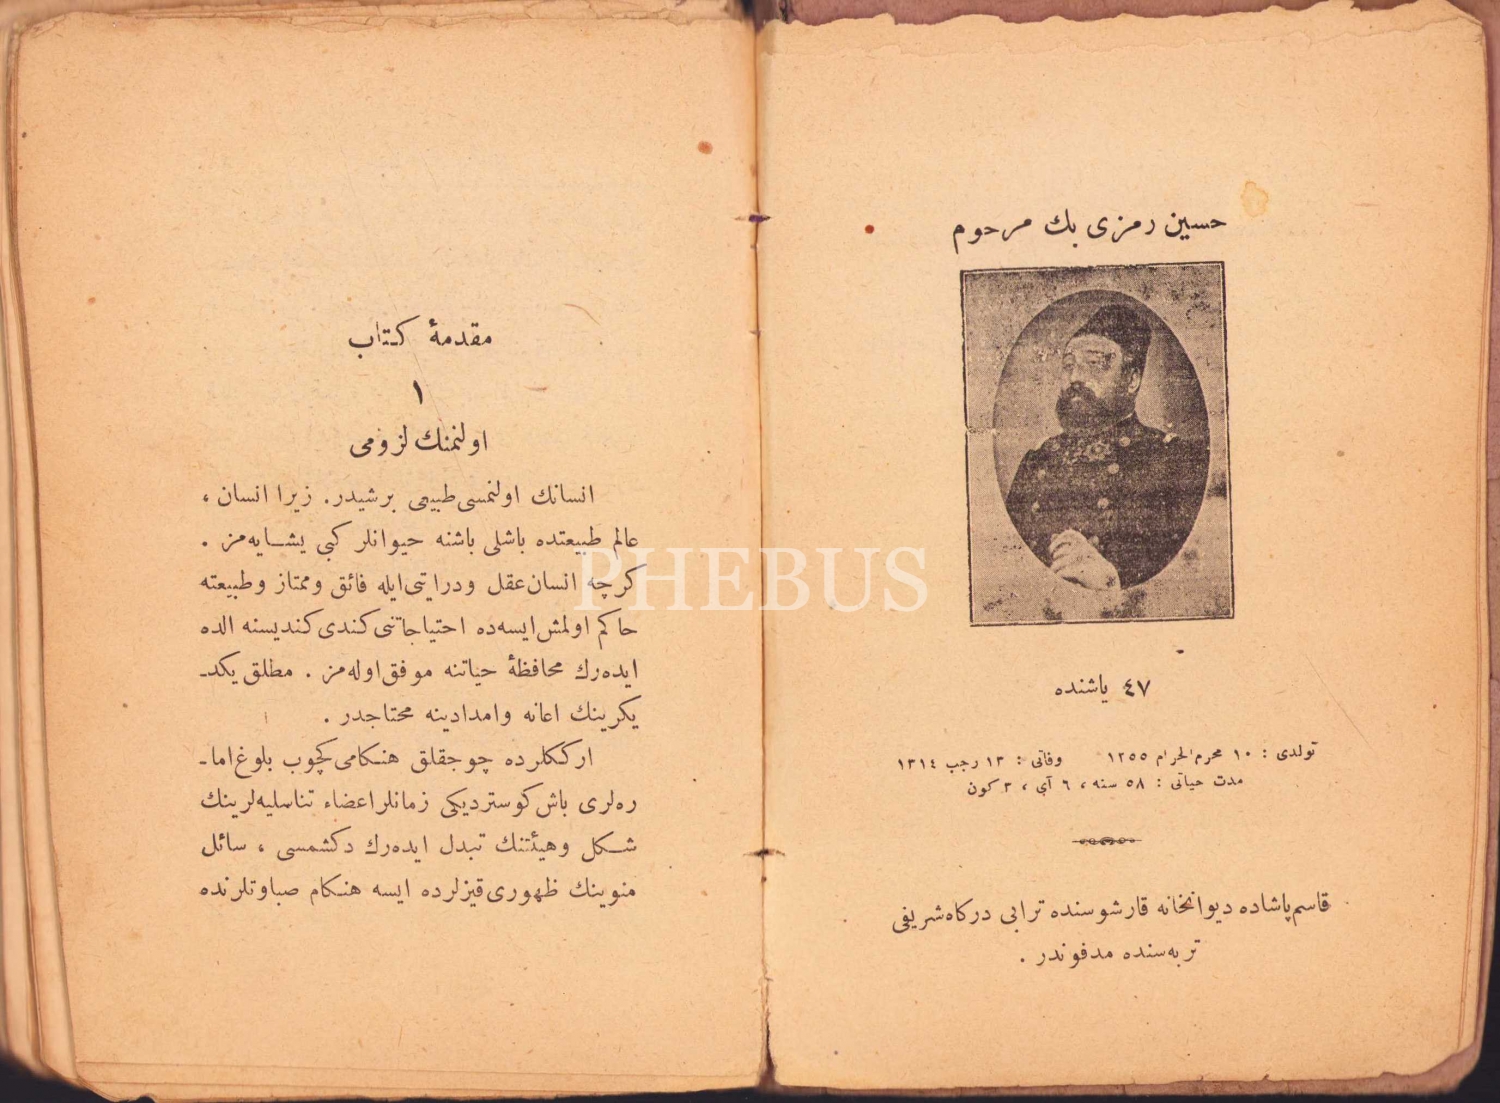 حسین رمزی بك مرحوم
٤٧ یاشنده
تولدی : ١٠ محرم‌الحرام ١٢٥٥ وفاتی : ١٣ رجب ١٣١٤
مدت حیاتی : ٥٨ سنه ، ٦ آی ، ٣ کون
قاسم‌پاشاده دیوانخانه قارشوسنده ترابی درکاه‌شریفی
تربه‌سنده مدفوندر .
مقدمهٔ کتاب
١
اولنمنك لزومی
انسانك اولنمسی طبیعی برشیدر. زیرا انسان ،
عالم طبیعتده باشلی باشنه حیوانلر کبی یشـایه‌مز .
کرچه انسان عقل ودرایتی‌ایله فائق وممتاز وطبیعته
حاکم اولمش‌ایسه‌ده احتیاجاتنی کندی کندیسنه الده
ایده‌رك محافظهٔ حیاتنه موفق اوله‌مز . مطلق یکدـ
یکرینك اعانه وامدادینه محتاجدر .
ارککلرده چوجقلق هنـکامی کچوب بلوغ اماـ
ره‌لری باش‌کوستردیکی زمانلر اعضاء تناسلیه‌لرینك
شـکل وهیئتنك تبدل ایده‌رك دکشمسی ، سائل
منوینك ظهوری قیزلرده ایسه هنـکام صباوتلرنده
PHEBUS